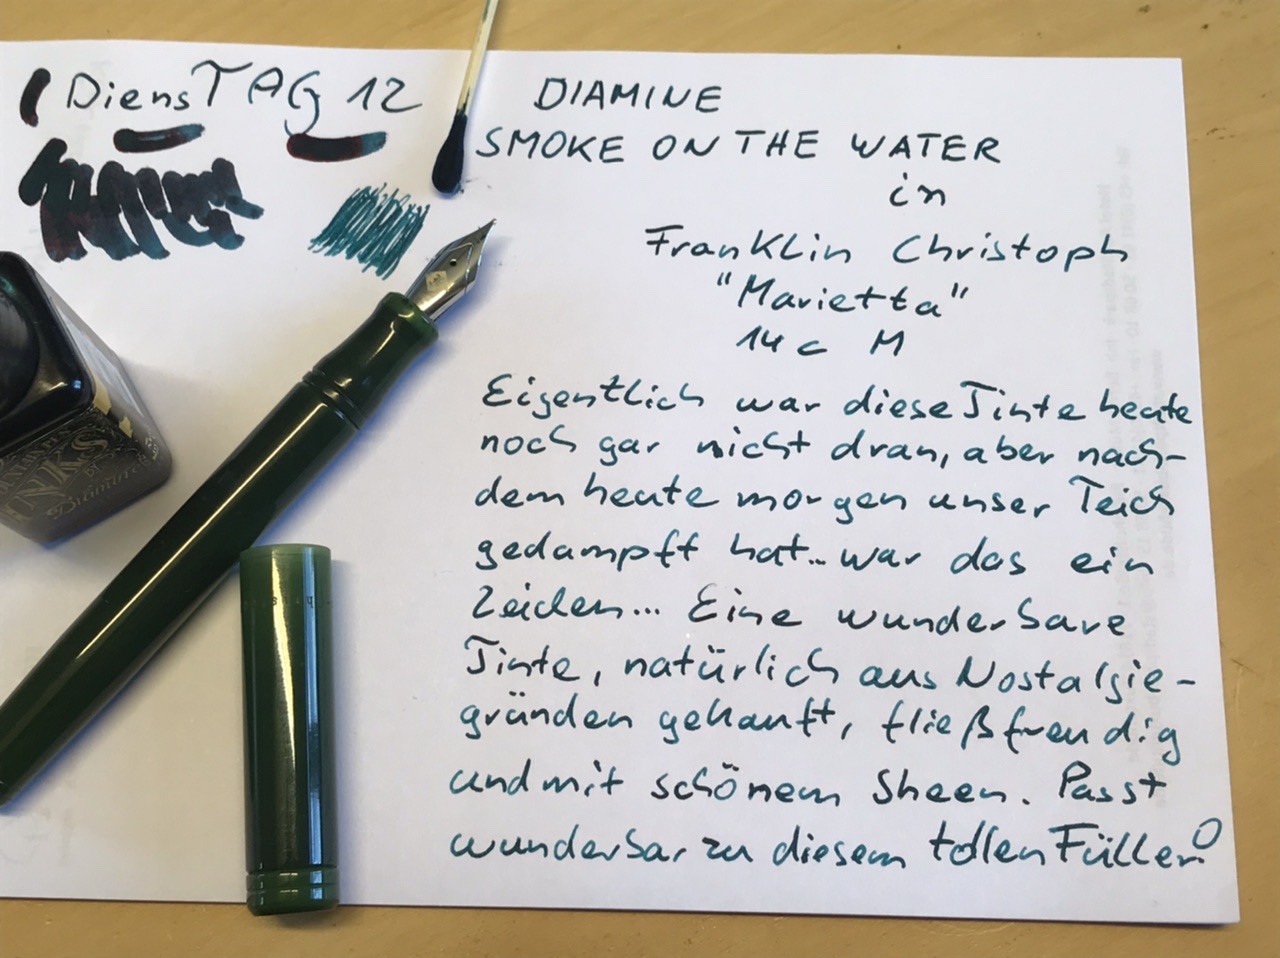 DiensTAG 12
DIAMINE
SMOKE ON THE WATER
in
Franklin Christoph
"Marietta"
14 c M
Eigentlich war diese Tinte heute
noch gar nicht dran, aber nach-
dem heute morgen unser Teich
gedampft hat... war das ein
Zeichen... Eine wunderbare
Tinte, natürlich aus Nostalgie-
gründen gekauft, fließfreudig
und mit schönem Sheen. Passt
wunderbar zu diesem tollen Füller!
INKS
BY
Diamine